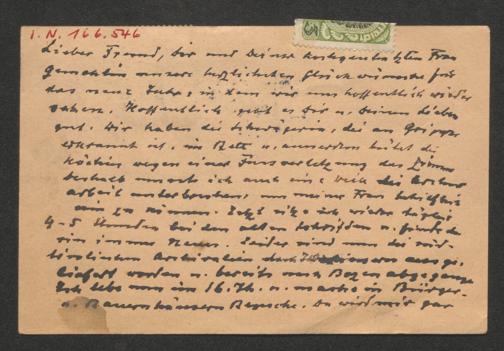 I.N. 166.546
Lieber Freund, Dir und Deiner hochgeschätzten Frau
Gemahlin unsere herzlichsten Glückwünsche für
das neue Jahr, in dem wir uns hoffentlich wieder
sehen. Hoffentlich geht es Dir u. Deinen Lieben
gut. Wir haben die Schwägerin, die an Grippe
erkrankt ist, im Bett u. ausserdem hütet die
Köchin wegen einer Fussverletzung das Zimmer
deshalb musste ich auch eine Weile die Archiv
arbeit unterbrechen, um meiner Frau behilflich
sein zu können. Jetzt sitze ich wieder täglich
4-5 Stunden bei den alten Schriften u. finde
immer Neues. Leider sind nun die süd-
tirolischen Archivalien den Italienern ausge-
liefert worden u. bereits nach Bozen abgegangen
Ich lebe nun im 16. Jh. u. mache in Bürger-
u. Bauernhäusern Besuche. Da wird mir gar